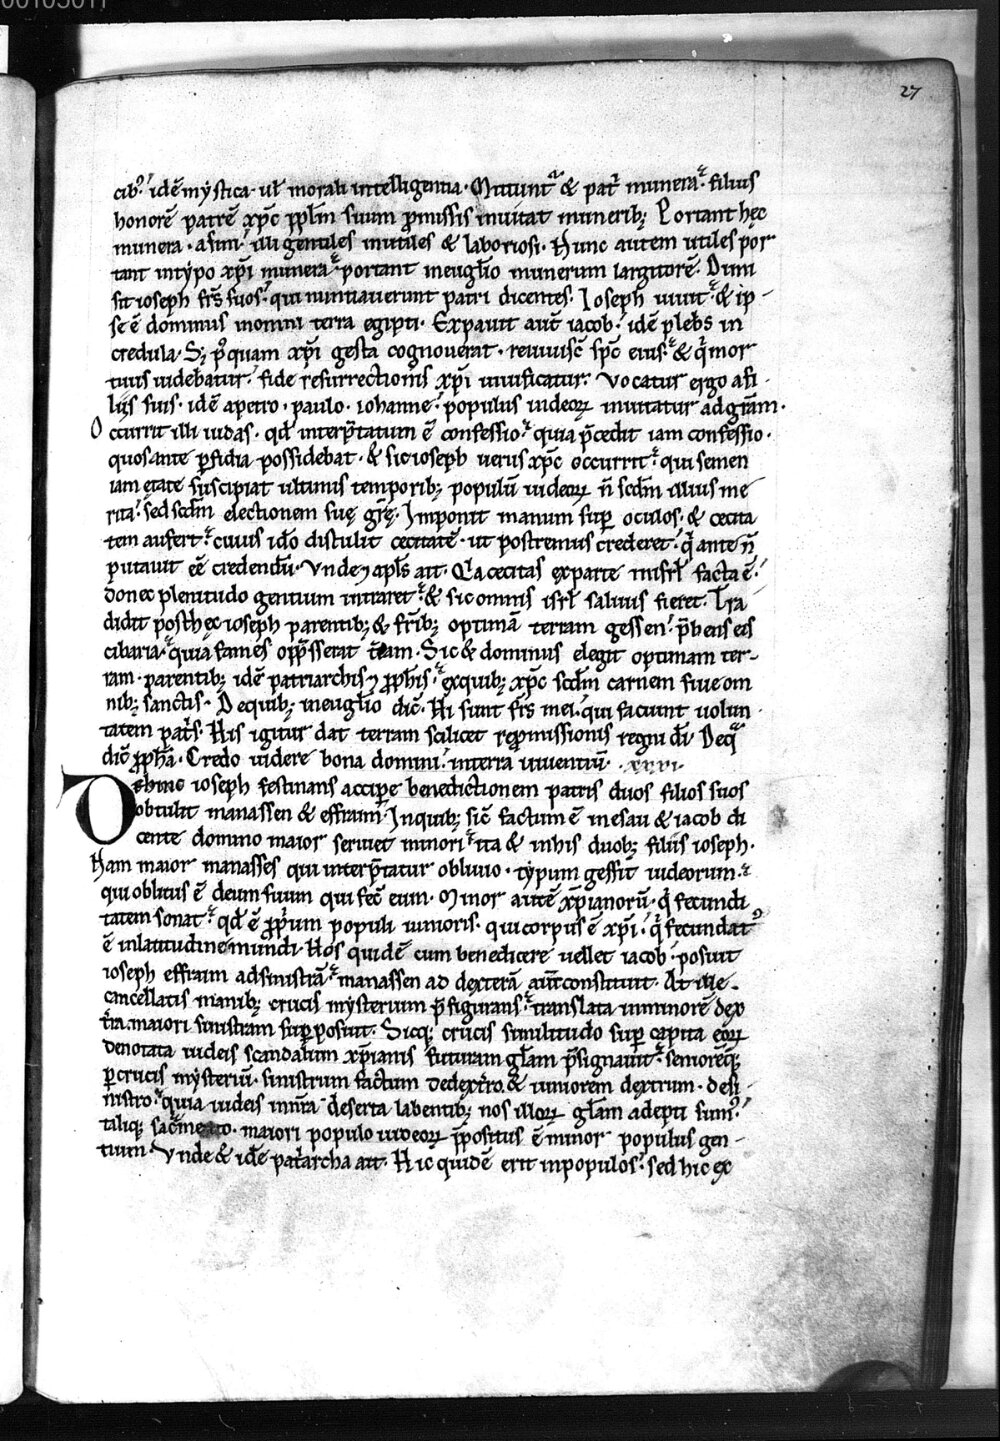 00105011
27
cib⁹. idē mystica. uł morali intelligentia. Mittunt᷑ & pat᷑ munera. filius
honorē patrē xp̄c pp̄lm suum p̄missis inuitat munerib; Portant hęc
munera. asini. illi gentiles inutiles & laboriosi. Nunc autem utiles por
tant intypo xp̄i munera. portant ineuḡlio munerum largitorē. Dimi
sit ioseph fr̄s suos. qui nuntiauerunt patri dicentes. Ioseph uiuit. & ip-
se ē dominus in omni terra egipti. Expauit aut̄ iacob. idē plebs in
credula. S; p⁹quam xp̄i gesta cognouerat. reuiuisc̄ sp̄c eius. & q̄ mor
tuus uidebatur. fide resurrectionis xp̄i uiuificatur. Vocatur ergo afi
liis suis. idē apetro. paulo. iohanne. populus iudeoꝝ inuitatur adgr̄am.
Occurrit illi iudas. qd̄ interp̄tatum ē confessio. quia p̄cedit iam confessio.
quos ante ꝑfidia possidebat. & sic ioseph uerus xp̄c occurrit. qui semen
iam ętate suscipiat ultimis temporib; populū iudeoꝝ n̄ scd̄m illius me
rita. sed scd̄m electionem suę gr̄ę. Imponit manum suꝑ oculos. & cecita
tem aufert. cuius id̄o distulit cecitatē. ut postremus crederet. q̄ ante n̄
putauit eē credendū. Vnde ⁊ apl̄s ait. Q̄a cecitas ex parte in isrł facta ē.
donec plenitudo gentium intraret. & sic omnis isrł saluus fieret. Tra
didit posthęc ioseph parentib; & fr̄ib; optimā terram gessen. p̄bens eis
cibaria. quia fames opp̄sserat t̄ram. Sic & dominus elegit optimam ter-
ram. parentib; idē patriarchis ⁊ pp̄his. exquib; xp̄c scd̄m carnem siue om
nib; sanctis. De quib; ineuḡlio dic̄. Hi sunt fr̄s mei. qui faciunt uolun
tatem pat᷑s. His igitur dat terram scilicet rep̄missionis regni d̄i. De q̄
dic̄ pp̄ha. Credo uidere bona domini. interra uiuentiū. .xxvi.
Dehinc ioseph festinans accipe benedictionem patris duos filios suos
obtulit manassen & effraim. In quib; sic̄ factum ē in esau & iacob di
cente domino maior seruiet minori. ita & inhis duob; filiis ioseph.
Nam maior manasses qui interp̄tatur obliuio. typum gessit iudeorum.
qui oblitus ē deum suum qui fec̄ eum. Minor autē xp̄ianorū. q̄ fecundi
tatem sonat. qd̄ ē pp̄ium populi iunioris. qui corpus ē xp̄i. q̄ fecundat⁹
ē inlatitudine mundi. Hos quidē cum benedicere uellet iacob. posuit
ioseph effraim adsinistrā. manassen ad dexterā aut̄ constituit. At ille
cancellatis manib; crucis mysterium p̄figurans. translata inminorē dex
t̄ra. maiori sinistram suꝑposuit. Sicq; crucis similitudo suꝑ capita eoꝝ
denotata iudeis scandalum xp̄ianis futuram gl̄am p̄signauit. seniorēq;
ꝑcrucis mysteriū. sinistrum factum dedext̄ro. & iuniorem dextrum. desi
nistro. quia iudeis inn̄ra deserta labentib; nos illoꝝ gl̄am adepti sum⁹.
taliq; sac̄mento. maiori populo iudeoꝝ p̄positus ē minor populus gen-
tium. Vnde & idē pat᷑archa ait. Hic quidē erit inpopulos. sed hic ex